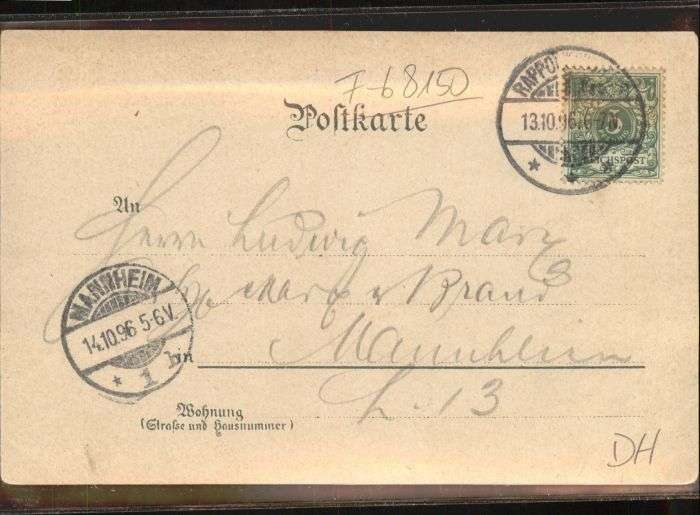 F-68150
Postkarte
RAPPO
13.10.96. 6-7N.
REICHSPOST
An
Herrn Ludwig Marx
Marx & Brand
in Mannheim
L. 13
MANNHEIM
14.10.96 5-6V.
* 1 b
Wohnung
(Straße und Hausnummer)
DH